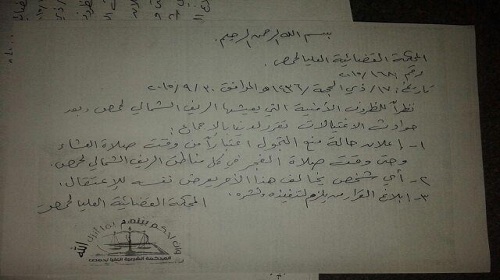 بسم الله الرحمن الرحيم
المحكمة القضائية العليا بحمص.
رقم ١٦٨/٢٠١٥
تاريخ: ١٧/ذي الحجة/١٤٣٦هـ الموافق ٣٠/٩/٢٠١٥
نظراً للظروف الأمنية التي يعيشها الريف الشمالي لحمص، وبعد
حوادث الاغتيالات تقرر لدينا بالإجماع:
١- إعلان حالة منع التجول اعتباراً من وقت صلاة العشاء
وحتى وقت صلاة الفجر في كل مناطق الريف الشمالي لحمص.
٢- أي شخص يخالف هذا الأمر يعرض نفسه للإعتقال.
٣- ابلاغ القرار من يلزم لتنفيذه ونشره.
المحكمة القضائية العليا بحمص
وأن احكم بينهم بما أنزل الله